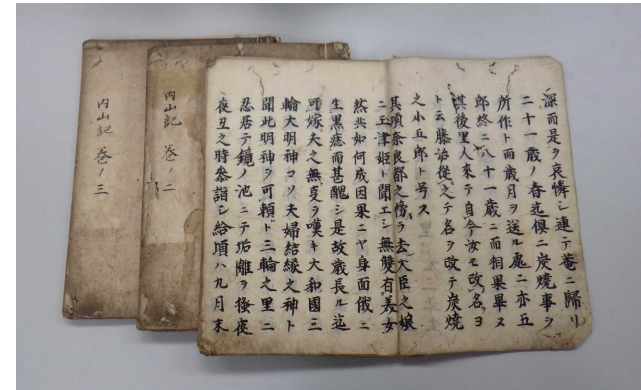 深而是ヲ哀憐シ連テ菴ニ歸リ
二十一歳ノ春迄倶ニ炭焼事ヲ
所作ト而歳月ヲ送ル處ニ亦五
郎終ニ八十一歳ニ而相果畢ヌ
其後里人来テ自今汝モ改名ヨ
ト云藤治従之テ名ヲ改テ炭焼
之小五郎ト号ス
其頃奈良都之傍ヲ去大臣之娘
ニ玉津姫ト聞エシ無雙有美女
然共如何成因果ニヤ身面俄ニ
生黒痣而甚醜シ是故歳長ル迄
可嫁夫之無叓ヲ嘆キ大和國三
輪大明神コソ夫婦結縁之神ト
聞此明神ヲ可頼ト三輪之里ニ
忍居テ鏡ノ池ニテ垢離ヲ掻夜
夜丑之時参詣シ給頃ハ九月末
内山記 巻ノ二
内山記 巻ノ三